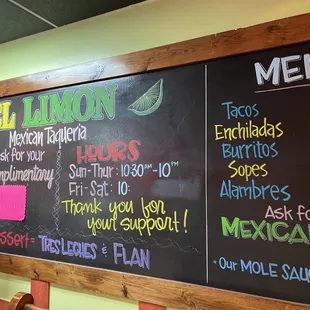 EL LIMON
Mexican Taqueria
ask for your
complimentary
HOURS
Sun-Thur: 10:30AM - 10PM
Fri-Sat: 10:
Thank you for
your support!
Dessert = TRES LECHES & FLAN
MEN
Tacos
Enchiladas
Burritos
Sopes
Alambres
Ask fo
MEXICAN
Our MOLE SAUC